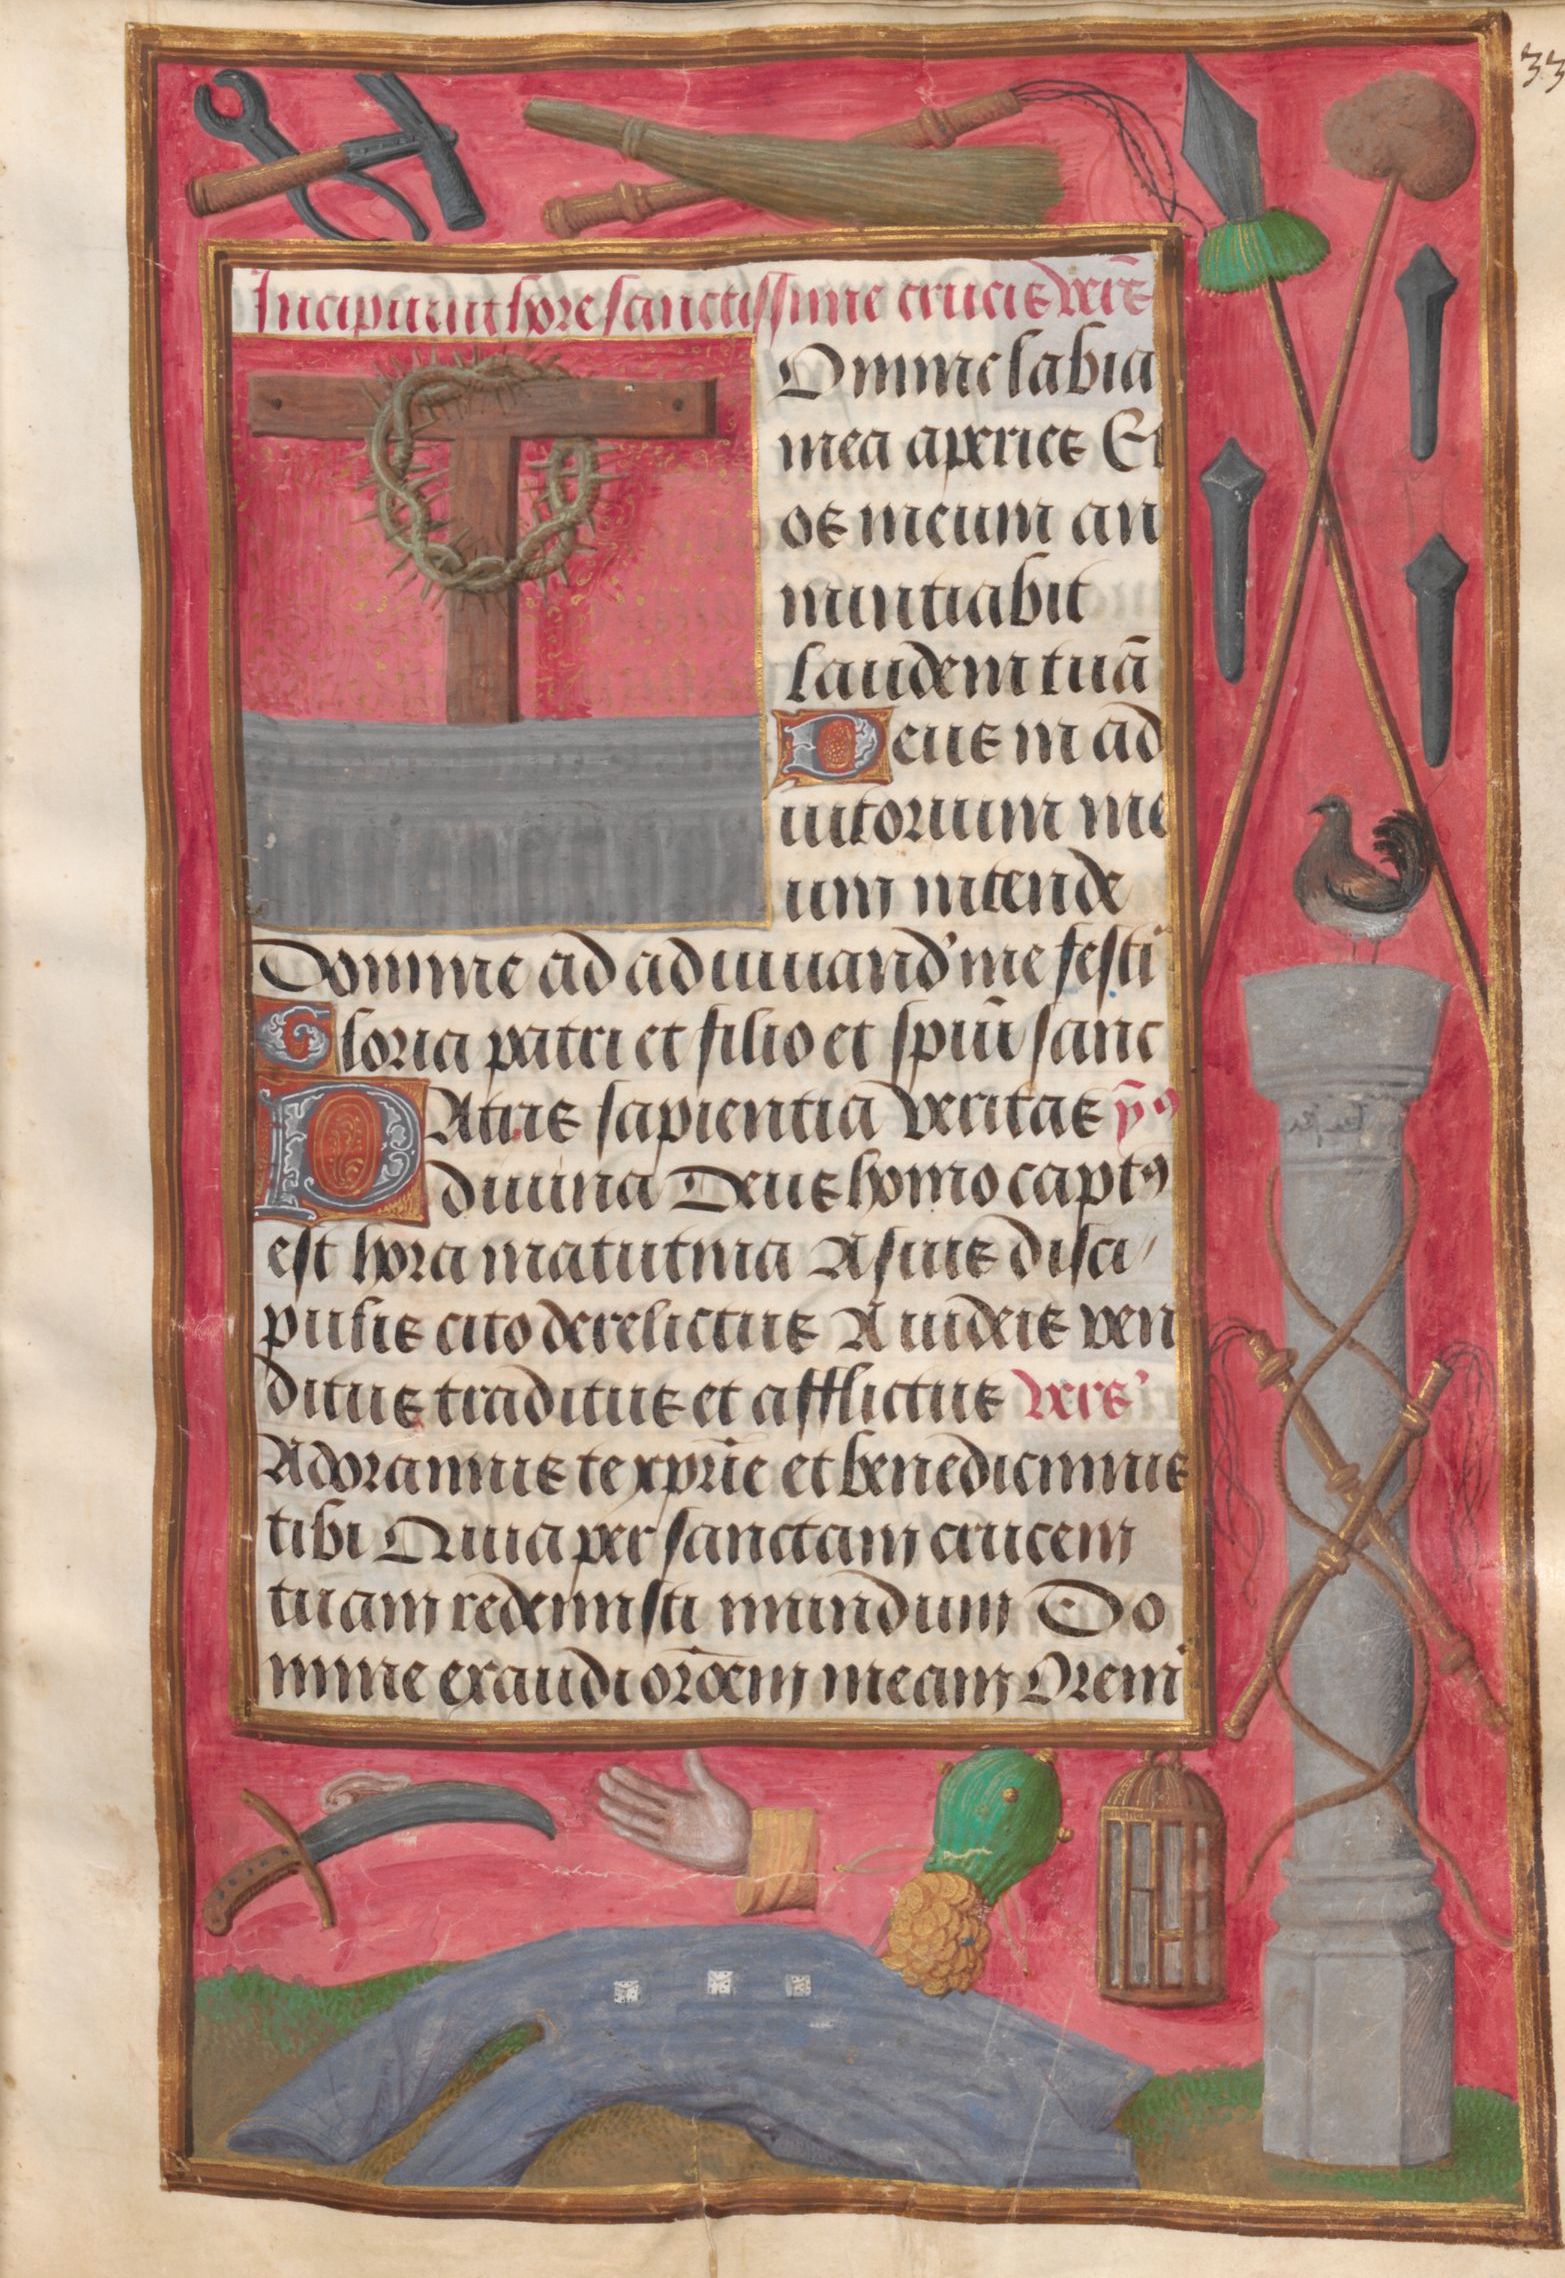 33
Incipiunt hore sanctissime crucis vers̄
Domine labia
mea aperies Et
os meum an
nuntiabit
laudem tuā
Deus in ad
iutorium me
um intende
Domine ad adiuuand' me festi
Gloria patri et filio et spiū sanc
PAtris sapientia veritas ẏꝰ
diuina Deus homo captꝰ
est hora matutina A suis disci
pulis cito derelictus A iudeis ven
ditus traditus et afflictus vers'
Adoramus te xpr̄ie et benedicimus
tibi Quia per sanctam crucem
tuam redemisti mundum Do
mine exaudi orōem meam Orem